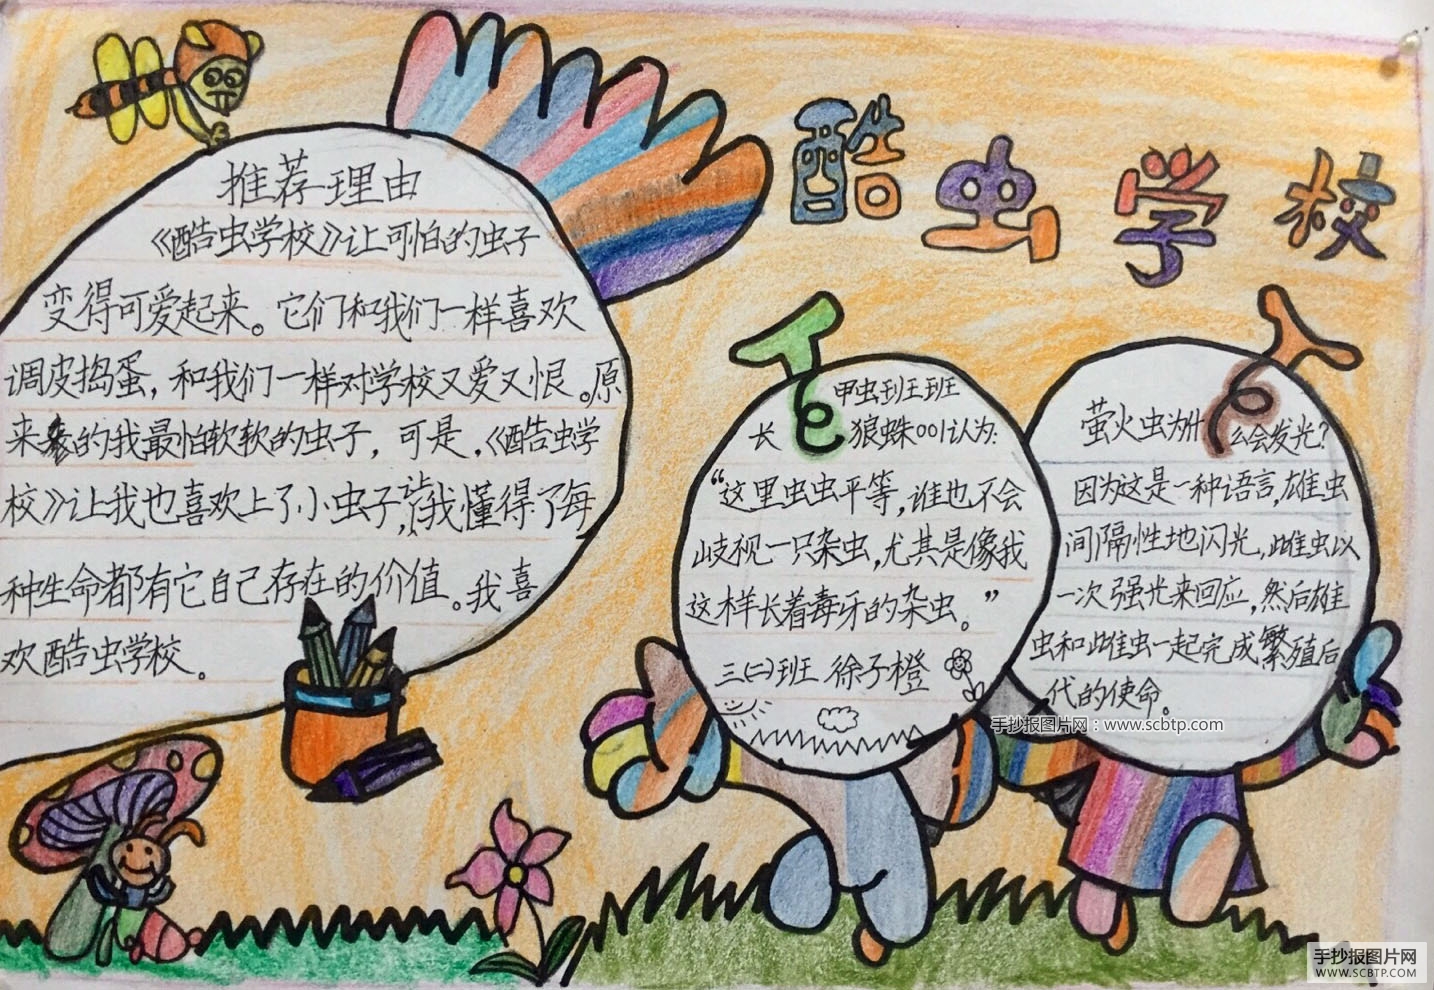 酷虫学校
推荐理由
《酷虫学校》让可怕的虫子
变得可爱起来。它们和我们一样喜欢
调皮捣蛋，和我们一样对学校又爱又恨。原
来的我最怕软软的虫子，可是，《酷虫学
校》让我也喜欢上了小虫子，让我懂得了每
种生命都有它自己存在的价值。我喜
欢酷虫学校。
甲虫班班
长 狼蛛001认为：
“这里虫虫平等，谁也不会
歧视一只杂虫，尤其是像我
这样长着毒牙的杂虫。”
三(二)班 徐子橙
萤火虫为什么会发光？
因为这是一种语言，雄虫
间隔性地闪光，雌虫以
一次强光来回应，然后雄
虫和雌虫一起完成繁殖后
代的使命。
手抄报图片网：www.scbtp.com
手抄报图片网
WWW.SCBTP.COM